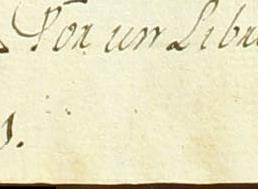 Por un Libr
1.